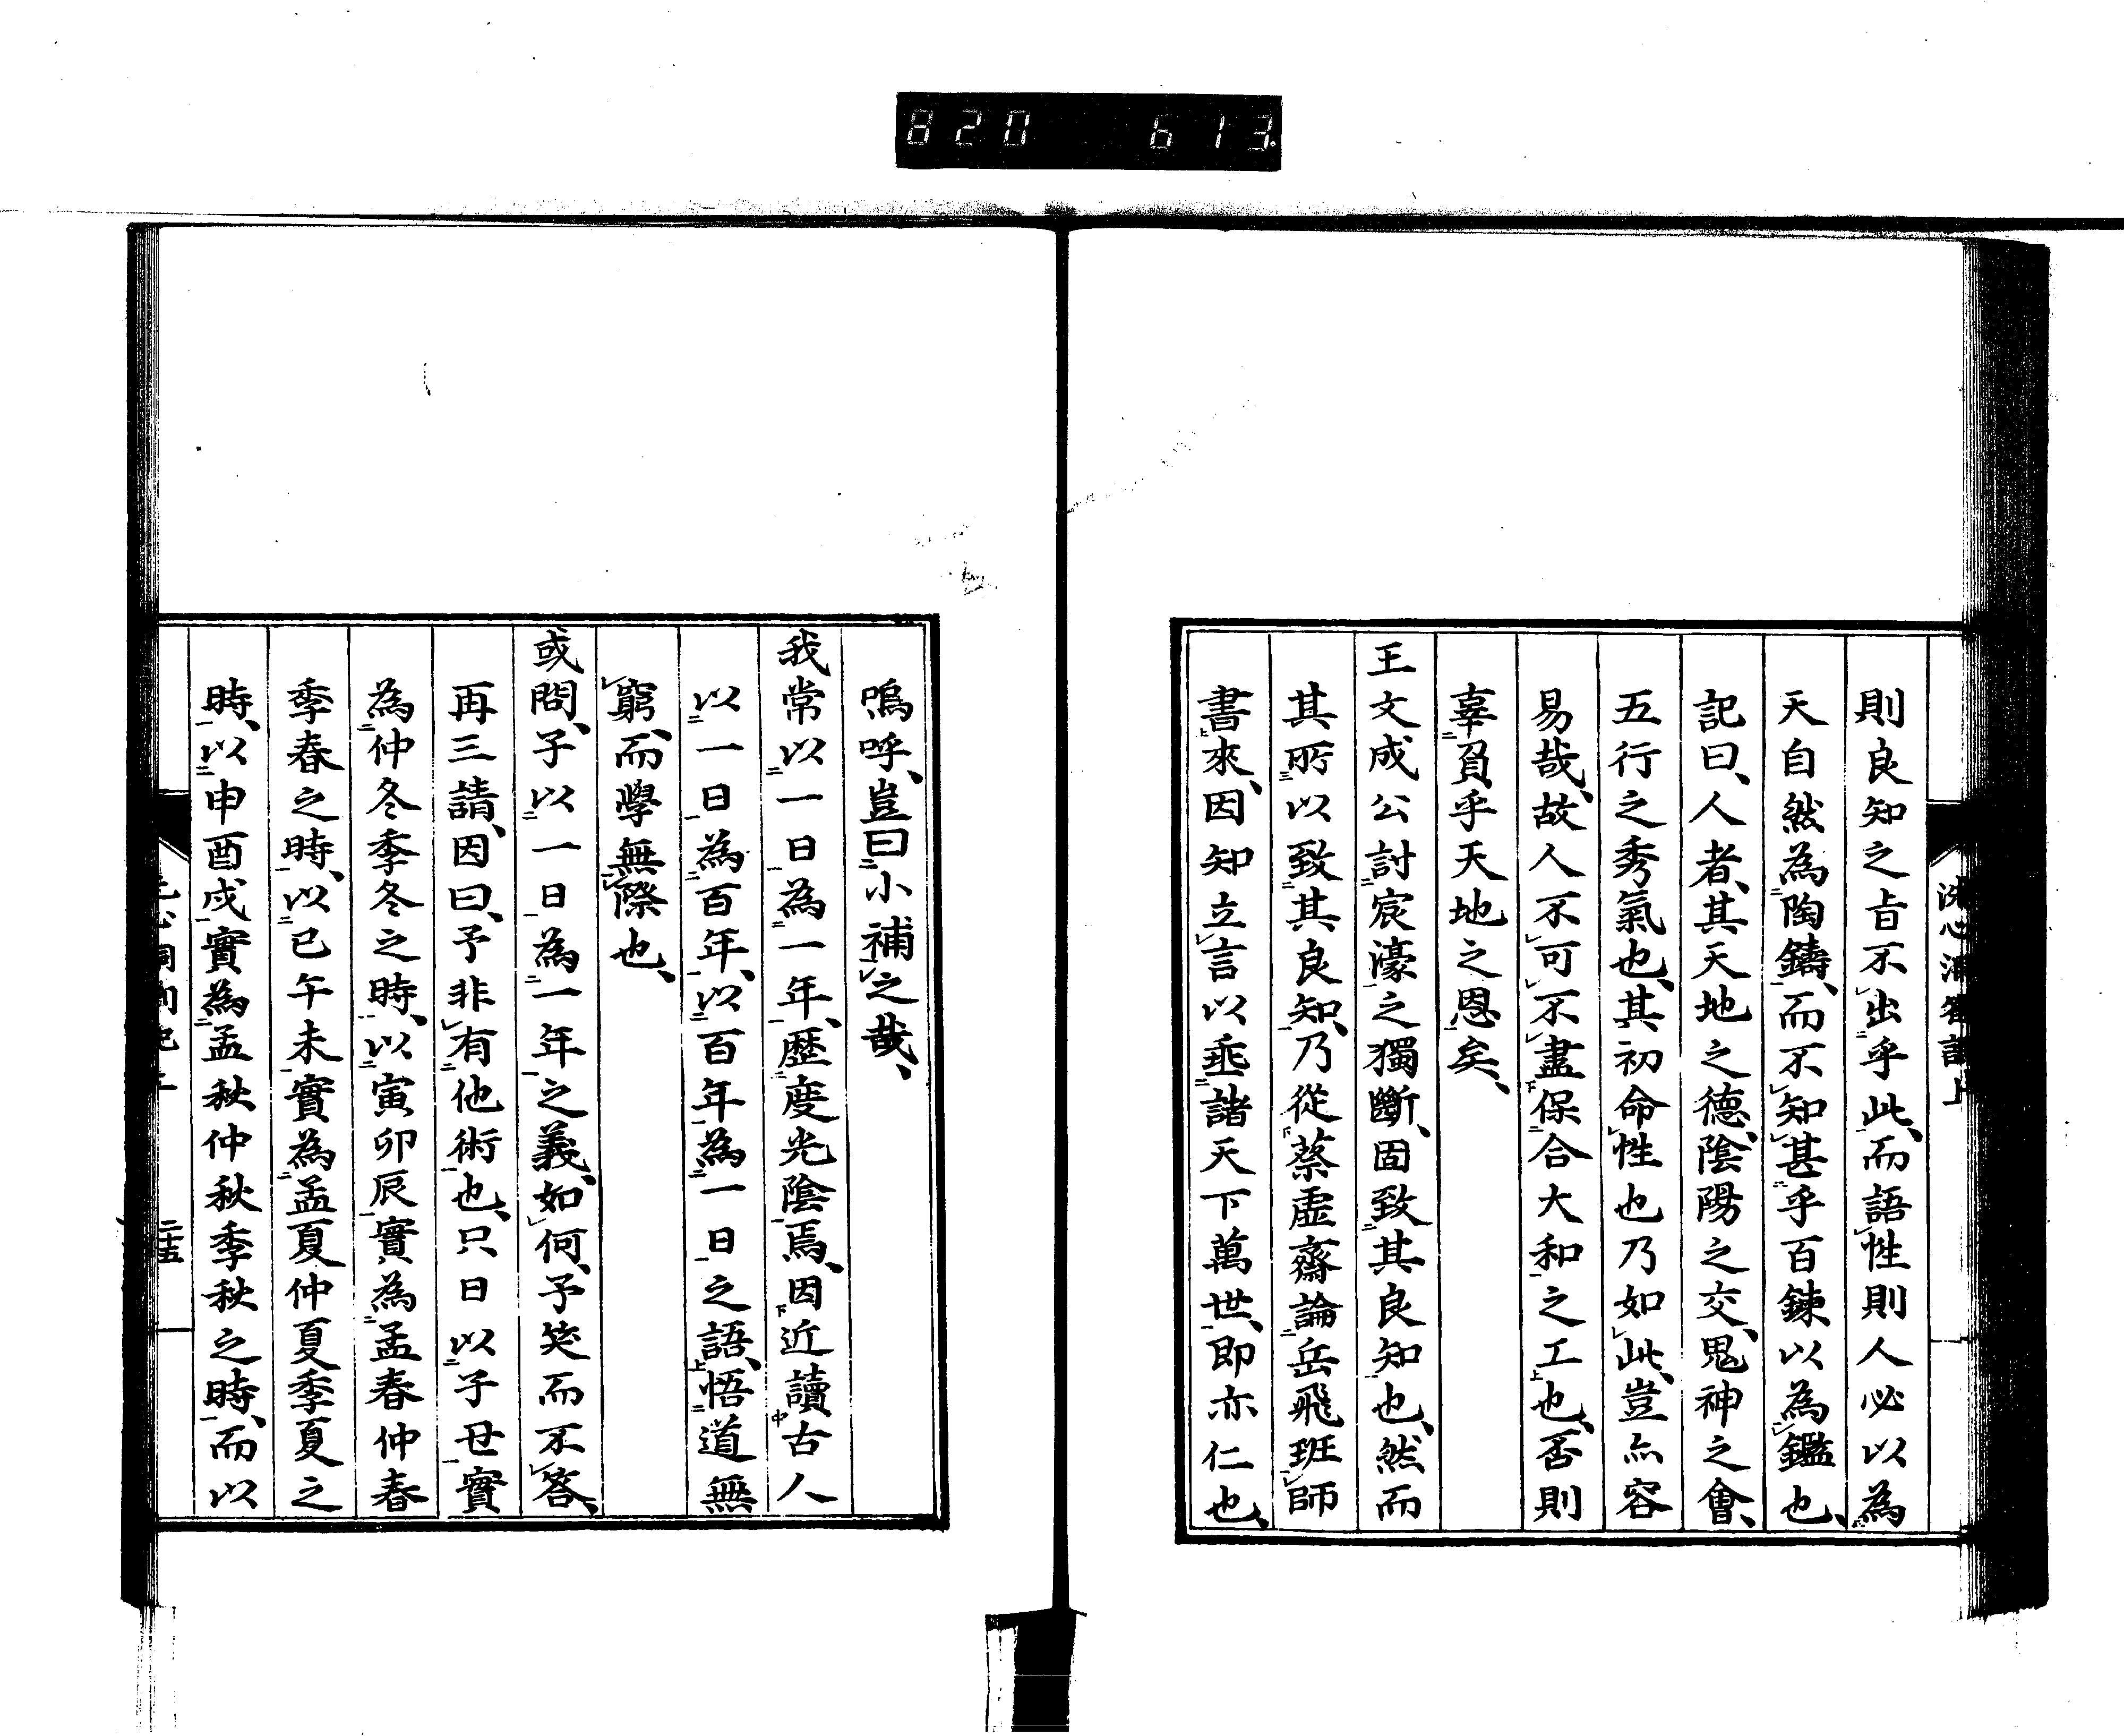 820 613
洗心洞箚記上
則良知之旨不出乎此、而語性則人必以為
天自然為陶鑄、而不知甚乎百鍊以為鑑也、
記曰、人者、其天地之德、陰陽之交、鬼神之會、
五行之秀氣也、其初命性也乃如此、豈亦容
易哉、故人不可不盡保合大和之工也、否則
辜負乎天地之恩矣、
王文成公討宸濠之獨斷、固致其良知也、然而
其所以致其良知、乃從蔡虛齋論岳飛班師
書來、因知立言以垂諸天下萬世、即亦仁也、
嗚呼、豈曰小補之哉、
我常以一日為一年、歷度光陰焉、因近讀古人
以一日為百年、以百年為一日之語、悟道無
窮、而學無際也、
或問、子以一日為一年之義、如何、予笑而不答、
再三請、因曰、予非有他術也、只日以子丑實
為仲冬季冬之時、以寅卯辰實為孟春仲春
季春之時、以巳午未實為孟夏仲夏季夏之
時、以申酉戌實為孟秋仲秋季秋之時、而以
二十五